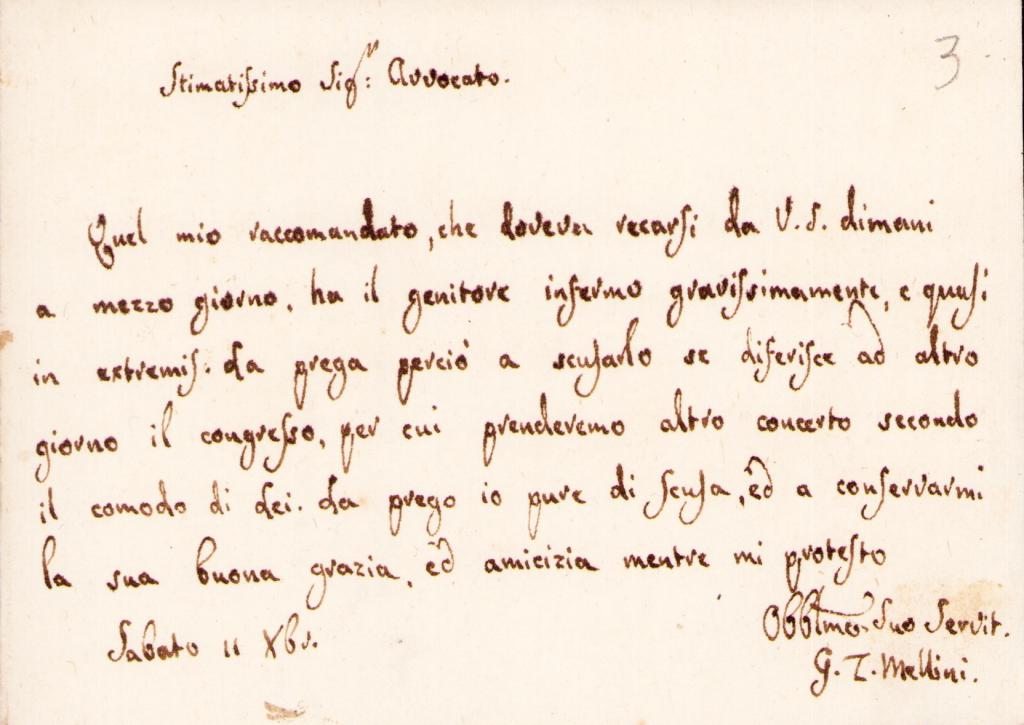 3
Stimatissimo Sig.r: Avvocato.
Quel mio raccomandato, che doveva recarsi da V. S. dimani
a mezzo giorno, ha il genitore infermo gravissimamente, e quasi
in extremis. La prega perciò a scusarlo se diferisce ad altro
giorno il congresso, per cui prenderemo altro concerto secondo
il comodo di Lei. La prego io pure di scusa, ed a conservarmi
la sua buona grazia, ed amicizia mentre mi protesto
Sabato 11 Xbr.
Obblmo Suo Servit.
G. T. Mellini.